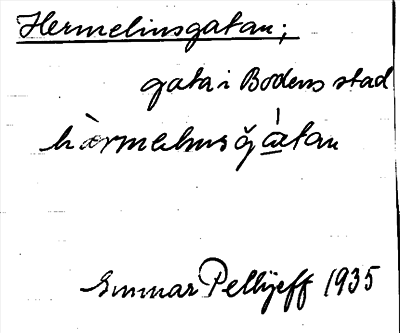 Hermelinsgatan;
gata i Bodens stad
hæ̀rmelinsg̊àtan
Gunnar Pellijeff 1935